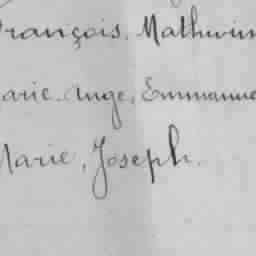 François, Mathurin
Marie-Ange, Emmanue
Marie, Joseph.